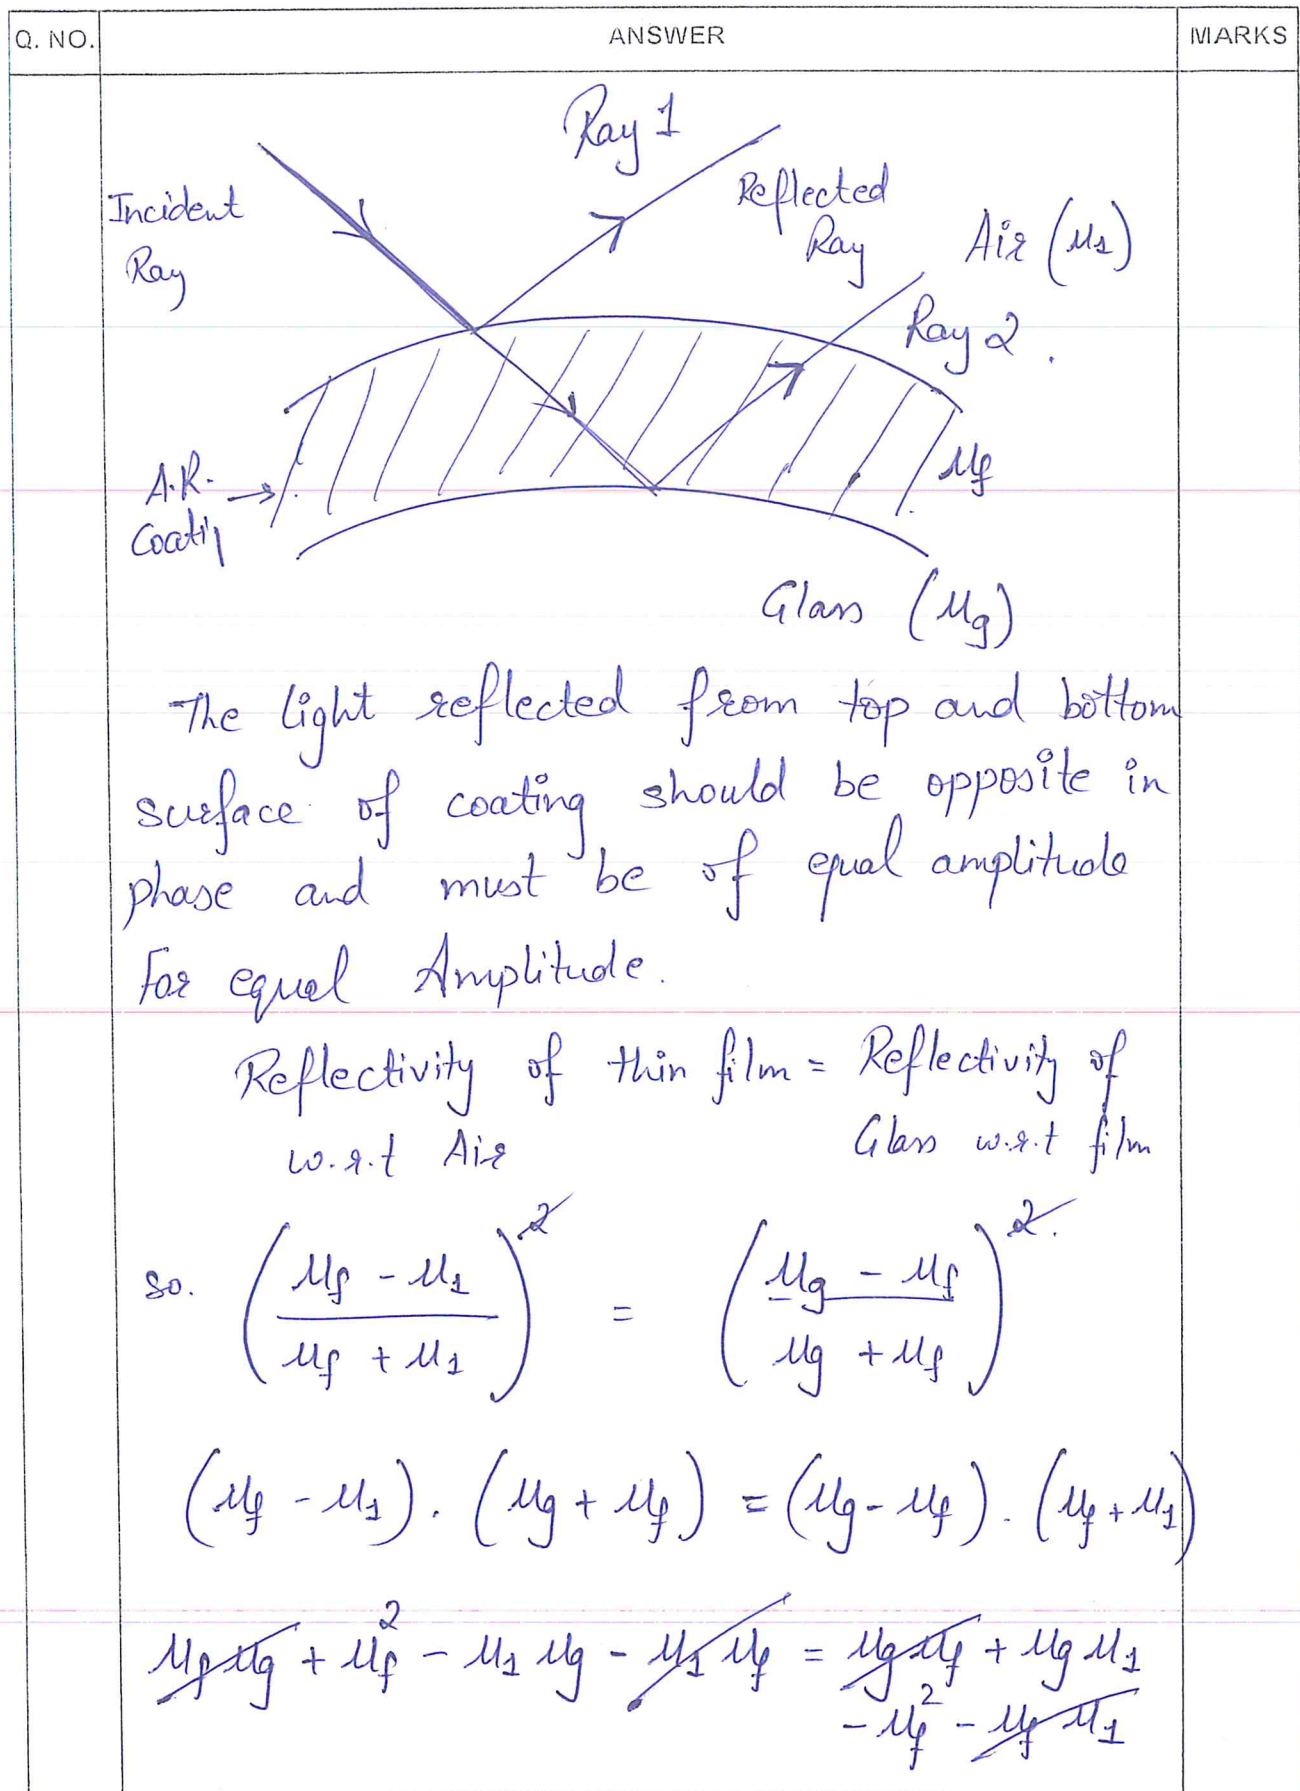 Q. NO. ANSWER MARKS
Ray 1
Incident
Ray
Reflected
Ray
Air (μ₁)
Ray 2.
A.R.
Coating
μf
Glass (μg)
The light reflected from top and bottom
surface of coating should be opposite in
phase and must be of equal amplitude
For equal Amplitude.
Reflectivity of thin film = Reflectivity of
w.r.t Air Glass w.r.t film
so. ((μf - μ₁)/(μf + μ₁))² = ((μg - μf)/(μg + μf))².
(μf - μ₁) . (μg + μf) = (μg - μf) . (μf + μ₁)
μf μg + μf² - μ₁ μg - μ₁ μf = μg μf + μg μ₁
- μf² - μf μ₁